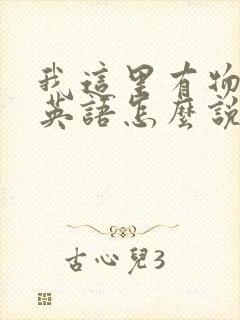 我這里有物
英語怎麼說
古心兒3